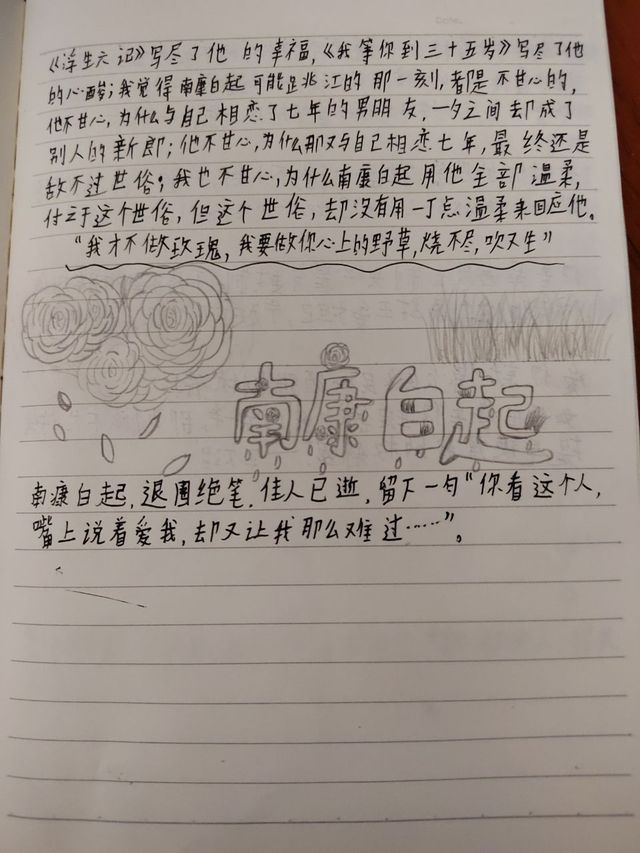 《浮生六记》写尽了他 的幸福,《我等你到三十五岁》写尽了他
的心酸;我觉得南康白起可能到北江的那一刻,都是不甘心的,
他不甘心,为什么与自己相恋了七年的男朋友,一夕之间却成了
别人的新郎;他不甘心,为什么那又与自己相恋七年,最终还是
敌不过世俗;我也不甘心,为什么南康白起用他全部温柔,
付之于这个世俗,但这个世俗,却没有用一丁点温柔来回应他。
“我才不做玫瑰,我要做你心上的野草,烧不尽,吹又生”
南康白起
南康白起,退圈绝笔.佳人已逝,留下一句“你看这个人,
嘴上说着爱我,却又让我那么难过……”。